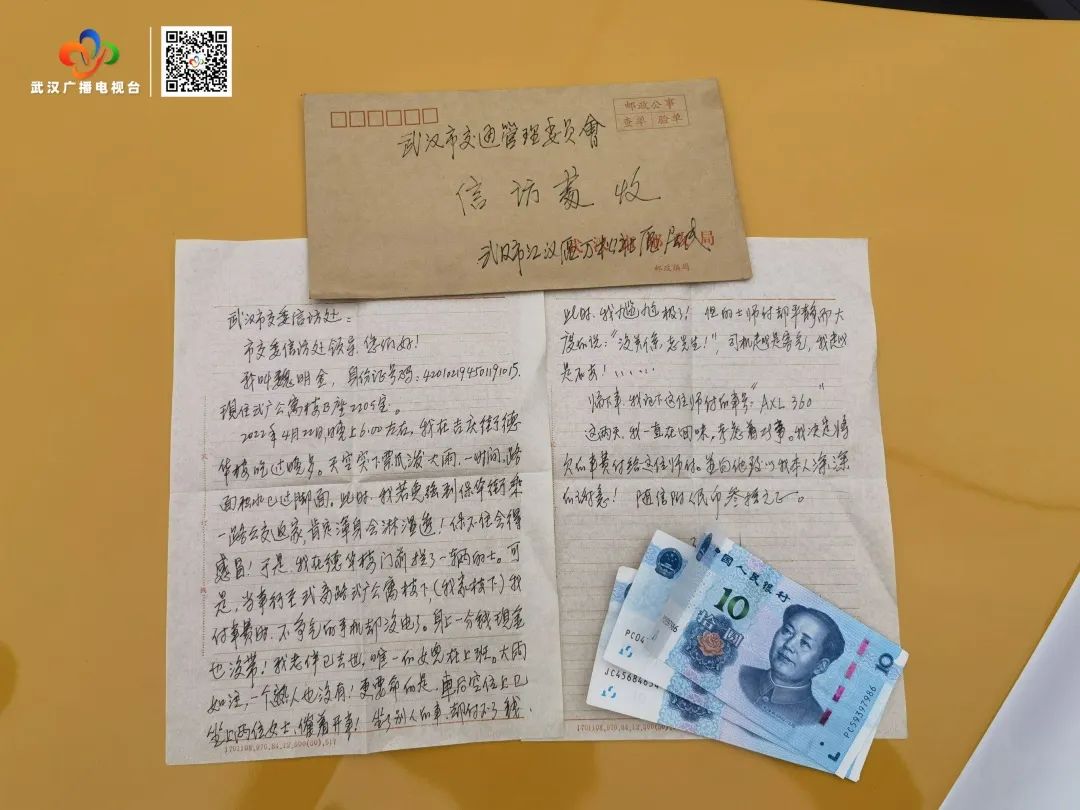 武汉广播电视台
邮政公事
查单 验单
武汉市交通管理委员會
信访处 收
武汉市江汉区万松
局
邮政编码
武汉市交委信访处：
市交委信访处领导，您们好！
我叫魏明金，身份证号码：420102194501191015.
现住武广公寓楼B座2205室。
2022年4月22日，晚上6:00左右，我在吉庆街德
华楼吃过晚歺。天空突下雷风泼大雨，一时间，路
面积水已过脚面。此时，我若免强到保华街乘
一路公交返家，肯定浑身会淋湿透！保不住会得
感冒！于是，我在德华楼门前拦了一辆的士。可
是，当车行至武商路武广公寓楼下，（我家楼下）我
付车费时，不争气的手机却没电了。身上一分钱现金
也没带！我老伴已去世，唯一的女儿在上班。大雨
如注，一个熟人也没有！更要命的是，车后空位上已
坐上两位女士，催着开车！坐了别人的车，却付不了钱，
此时，我尴尬极了！但的士师付却平静而大
度的说：“没关系，老先生！”，司机越是客气，我越
是不安！......
临下车，我记下这位师付的车号“AXL360”
这两天，我一直在回味，考虑着此事。我决定将
欠的车费付给这位师付。并向他致以我本人深深
的谢意！随信附人民币叁拾元正。
1701108.070.84.12.000(00).517
1701108.070.84.12.000(00).517
中国人民银行
10
拾圆
10
PC59397986
PC04
JC4568463